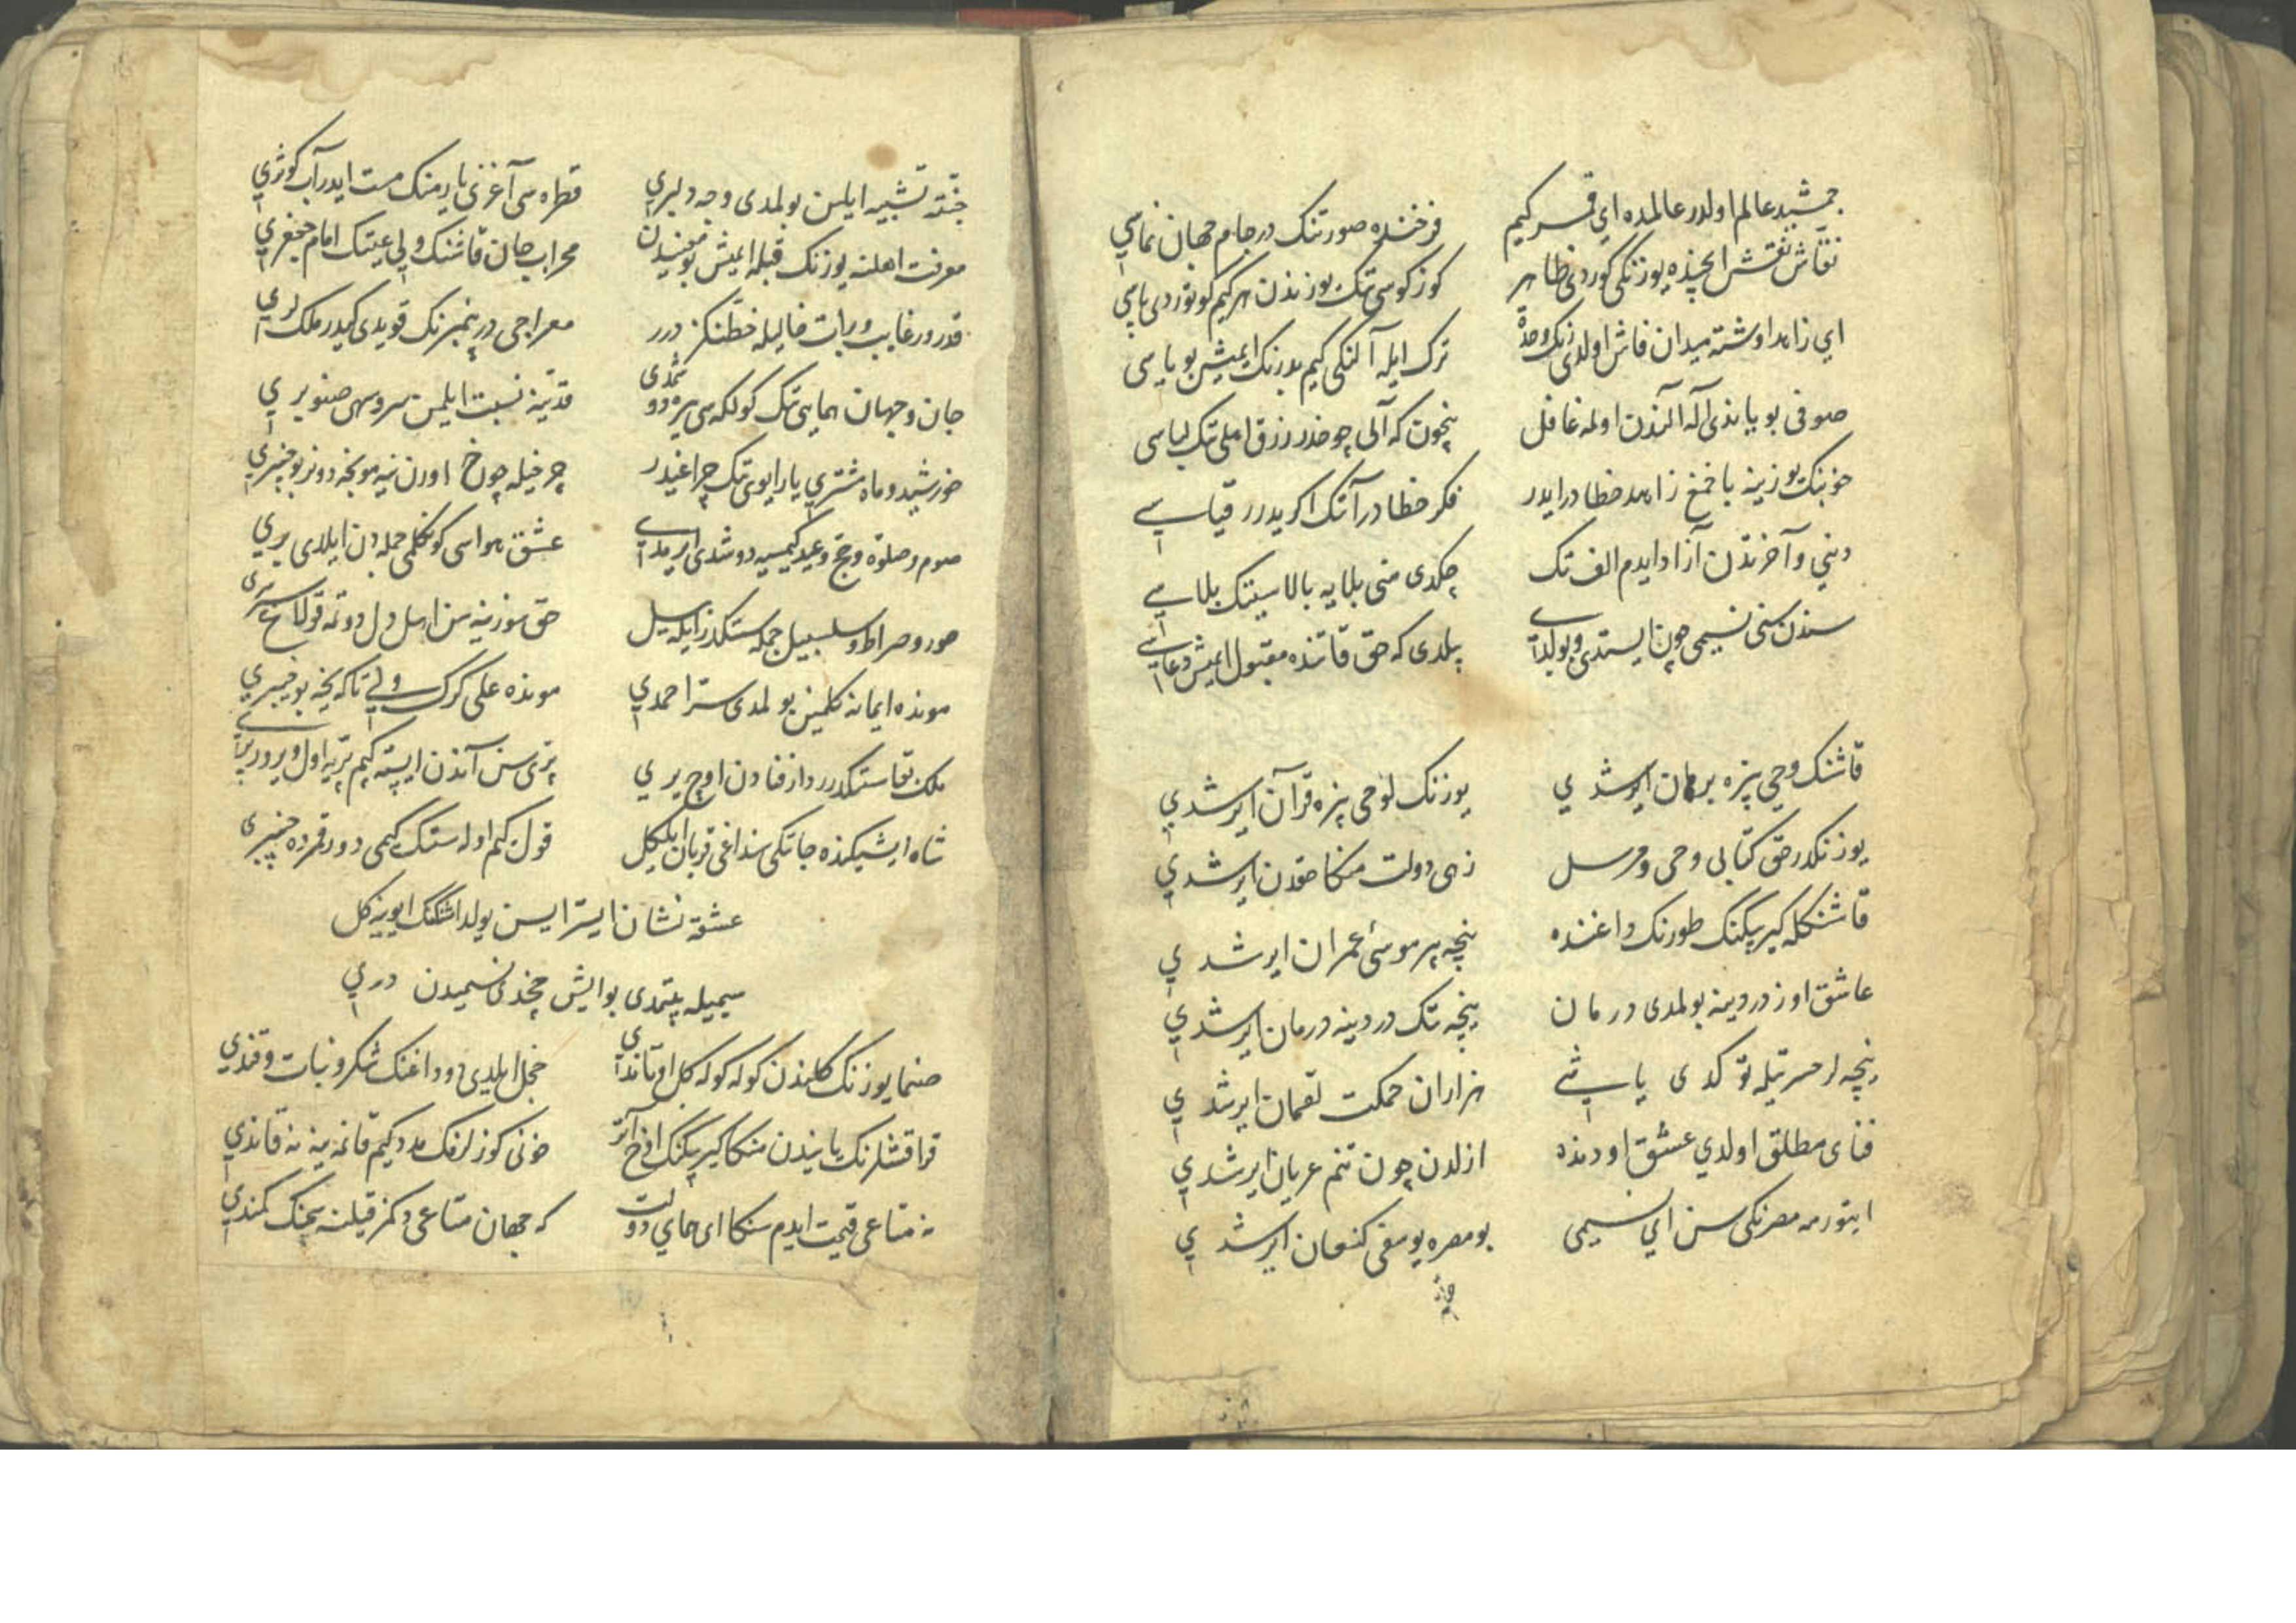 جمشید عالم اولدر عالمده ای قمر کیم
فرخنده صورتنک در جام جهان نمایی
نقاش نقش ایچنده یوزنکی کوردی ظاهر
کوزکوسی تک یوزندن هر کیم کوتوردی پاسی
ای زاهد اوشته میدان فاش اولدی رنک وحدة
ترک ایله آلنکی کیم بو رنک ایمیش بویاسی
صوفی بویاندی آله آلندن اولمه غافل
نچون که آلی چوخدر رزق اهلی تک لباسی
خوبنک یوزینه باخمغ زاهد خطا در ایدر
فکر خطا در آنک اکریدرر قیاسی
دنیی و آخرتدن آزاد ایدم الف تک
چکدی منی بلایه بالاسینک بلاسی
سندن سنی نسیمی چون ایستدی و بولدی
بلدی که حق قاتنده مقبول ایمیش دعاسی
قاشنک وحیی بزه برهان ایرشدی
یوزنک لوحی بزه قرآن ایرشدی
یوزنکدر حق کتابی وحی و مرسل
زهی دولت منکا حقدن ایرشدی
قاشنکله کیرپیکنک طورنک داغنده
نیچه بیر موسئ عمران ایرشدی
عاشق اوز دردینه بولمدی درمان
نیچه تک دردینه درمان ایرشدی
نیچه لر حسرتیله توکدی یاشی
هزاران حکمت لقمان ایرشدی
فنای مطلق اولدی عشق اودنده
ازلدن چون تنم عریان ایرشدی
ایتورمه مصرنکی سن ای نسیمی
بو مصره یوسف کنعان ایرشدی
جنته تشبیه ایلمن بولمدی وجه دلبری
قطره سی آغزی یارمنک مست ایدر آب کوثری
معرفت اهلنه یوزنک قبله ایمیش بو معنیدن
محراب جان قاشنک ولی عینک امام جعفری
معراجی در پیغمبرنک قویدی کیدر ملک لری
جان و جهان همایی تک کولکه سی یره دوشمدی
قدینه نسبت ایلمن سرو سهی صنوبری
خورشید و ماه مشتری یار ایوی تک چراغیدر
چرخیله چوخ اورن نیه مونجه دونر بو چنبری
صوم و صلوة و حج و عید کیمسیه دوشدی ایرمدی
عشق هواسی کونکلمی جمله دن ایلدی بری
حور و صراط و سلسبیل جمله سنکدرر ایله بیل
حق سوزینه سن اهل دل دوتمه قولاغ سرسری
مونده ایمانه کلمین بولمدی سر احمدی
مونده علی کرک ولی تاکه ییخه بو خیبری
ملک بقا سنکدرر دار فنادن اوج یری
شاه ایشیکنده جانکی سنداغی قربان ایله کل
عشقه نشان ایستر ایسن یولداشنک ایوینه کل
سیمیله بیتمدی بو ایش چخدی نسیمیدن دری
صنما یوزنک کلندن کوله کوله کل اوتاندی
خجل ایلدی دوداغنک شکر و نبات و قندی
قرا قاشلرنک یایندن منکا کیرپیکنک اوخ آتر
خونی کوزلرنک مدد کیم قانمه ینه نه قاندی
نه متاعی قیمت ایدم سنکا ای همای دولت
که جهان متاعی دکمز قیلنه سچنک کمندی